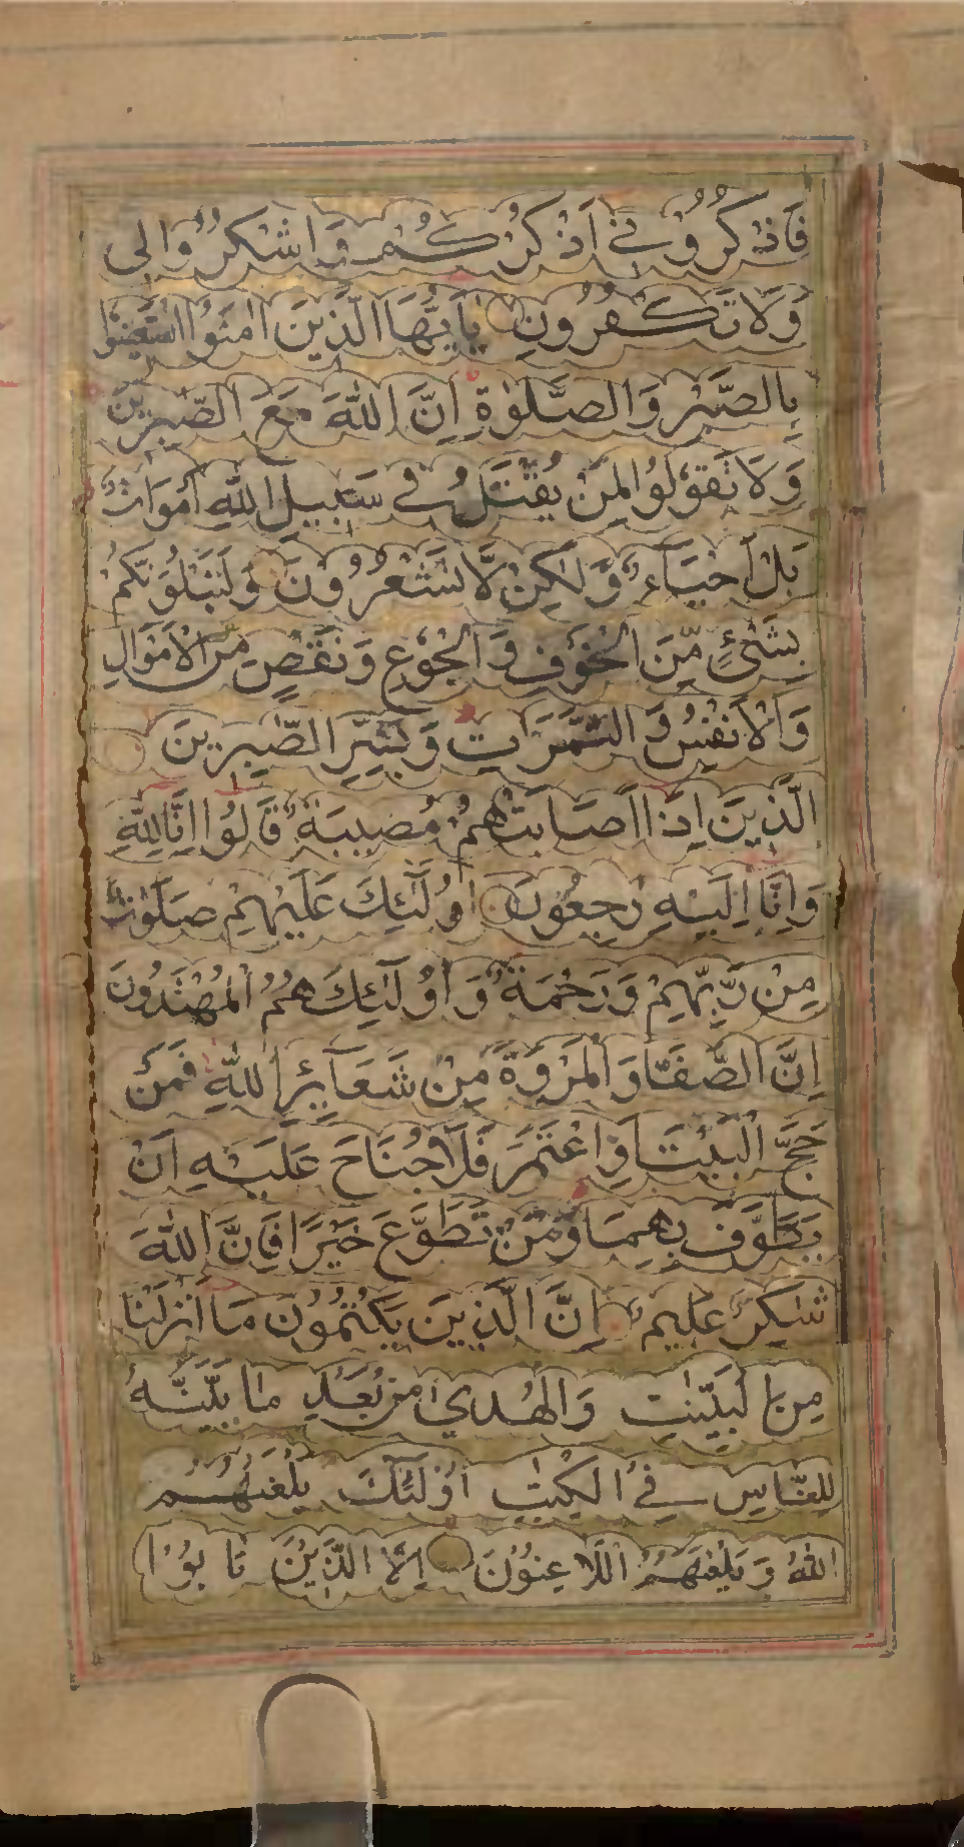 فَاذْكُرُونِي أَذْكُرْكُمْ وَاشْكُرُوا لِي
وَلَا تَكْفُرُونِ يٰأَيُّهَا الَّذِينَ اٰمَنُوا اسْتَعِينُوا
بِالصَّبْرِ وَالصَّلٰوةِ اِنَّ اللّٰهَ مَعَ الصّٰبِرِينَ
وَلَا تَقُولُوا لِمَنْ يُقْتَلُ فِي سَبِيلِ اللّٰهِ اَمْوَاتٌ
بَلْ اَحْيَاءٌ وَّلٰكِنْ لَّا تَشْعُرُونَ وَلَنَبْلُوَنَّكُمْ
بِشَيْءٍ مِّنَ الْخَوْفِ وَالْجُوْعِ وَنَقْصٍ مِنَ الْاَمْوَالِ
وَالْاَنْفُسِ وَالثَّمَرَاتِ وَبَشِّرِ الصّٰبِرِينَ
الَّذِينَ اِذَا اَصَابَتْهُمْ مُصِيبَةٌ قَالُوا اِنَّا لِلّٰهِ
وَاِنَّا اِلَيْهِ رٰجِعُونَ اُولٰٓئِكَ عَلَيْهِمْ صَلَوٰتٌ
مِنْ رَّبِّهِمْ وَرَحْمَةٌ وَاُولٰٓئِكَ هُمُ الْمُهْتَدُونَ
اِنَّ الصَّفَا وَالْمَرْوَةَ مِنْ شَعَآئِرِ اللّٰهِ فَمَنْ
حَجَّ الْبَيْتَ اَوِ اعْتَمَرَ فَلَا جُنَاحَ عَلَيْهِ اَنْ
يَطَّوَّفَ بِهِمَا وَمَنْ تَطَوَّعَ خَيْرًا فَاِنَّ اللّٰهَ
شٰكِرٌ عَلِيمٌ اِنَّ الَّذِينَ يَكْتُمُوْنَ مَا اَنْزَلْنَا
مِنَ الْبَيِّنٰتِ وَالْهُدٰي مِنْ بَعْدِ مَا بَيَّنّٰهُ
لِلنَّاسِ فِي الْكِتٰبِ اُولٰٓئِكَ يَلْعَنُهُمُ
اللّٰهُ وَيَلْعَنُهُمُ اللَّاعِنُوْنَ اِلَّا الَّذِيْنَ تَابُوْا